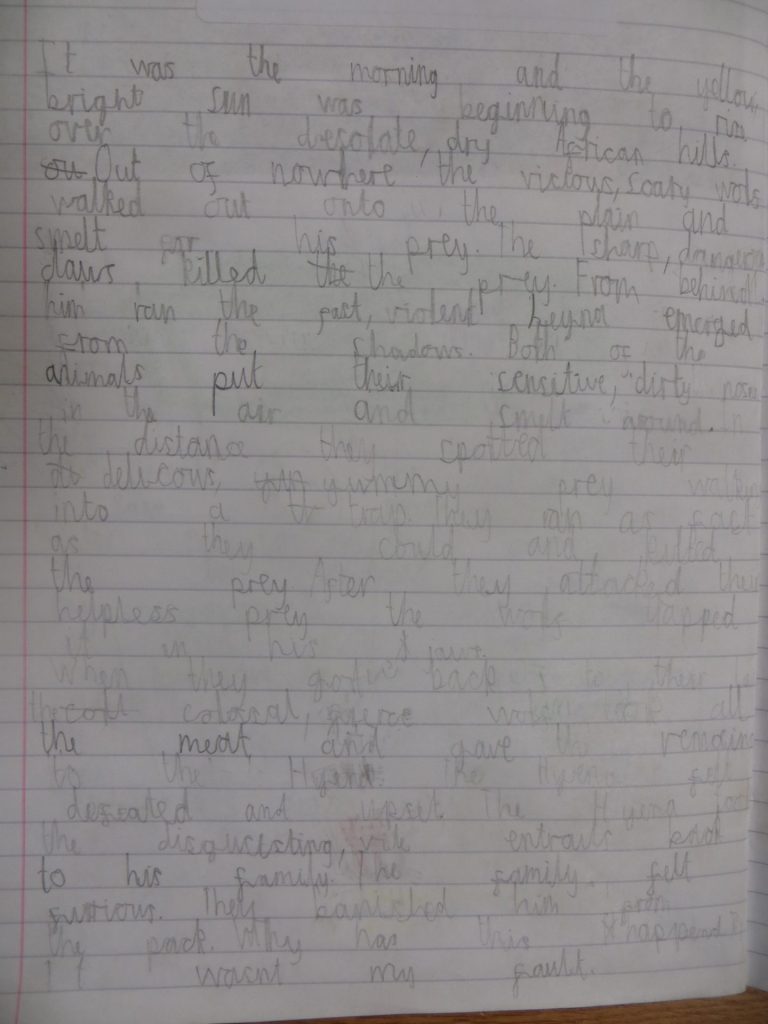 It was the morning and the yellow
bright sun was beginning to
over the desolate, dry African hills.
Out of nowhere the vicious, scary
walked out onto the plain and
smelt for his prey. The sharp,
claws, killed the prey. From behind
him ran the fast, violent heyna emerged
from the shadows. Both of the
animals put their sensitive, dirty nose
in the air and smelt around. In
the distance they spotted their
delicous, yummy prey
into a trap. They ran as fast
as they could and killed
the prey. After they attacked their
helpless prey the yapped
it in his jaws.
When they back to their
colossal, fierce all
the meat and gave the remains
to the Hyena. The Hyena felt
defeated and upset. The Hyena took
the disguesting, vile entrails
to his family. The family felt
furious. They banished him from
the pack. Why has this happend?
It wasnt my fault.